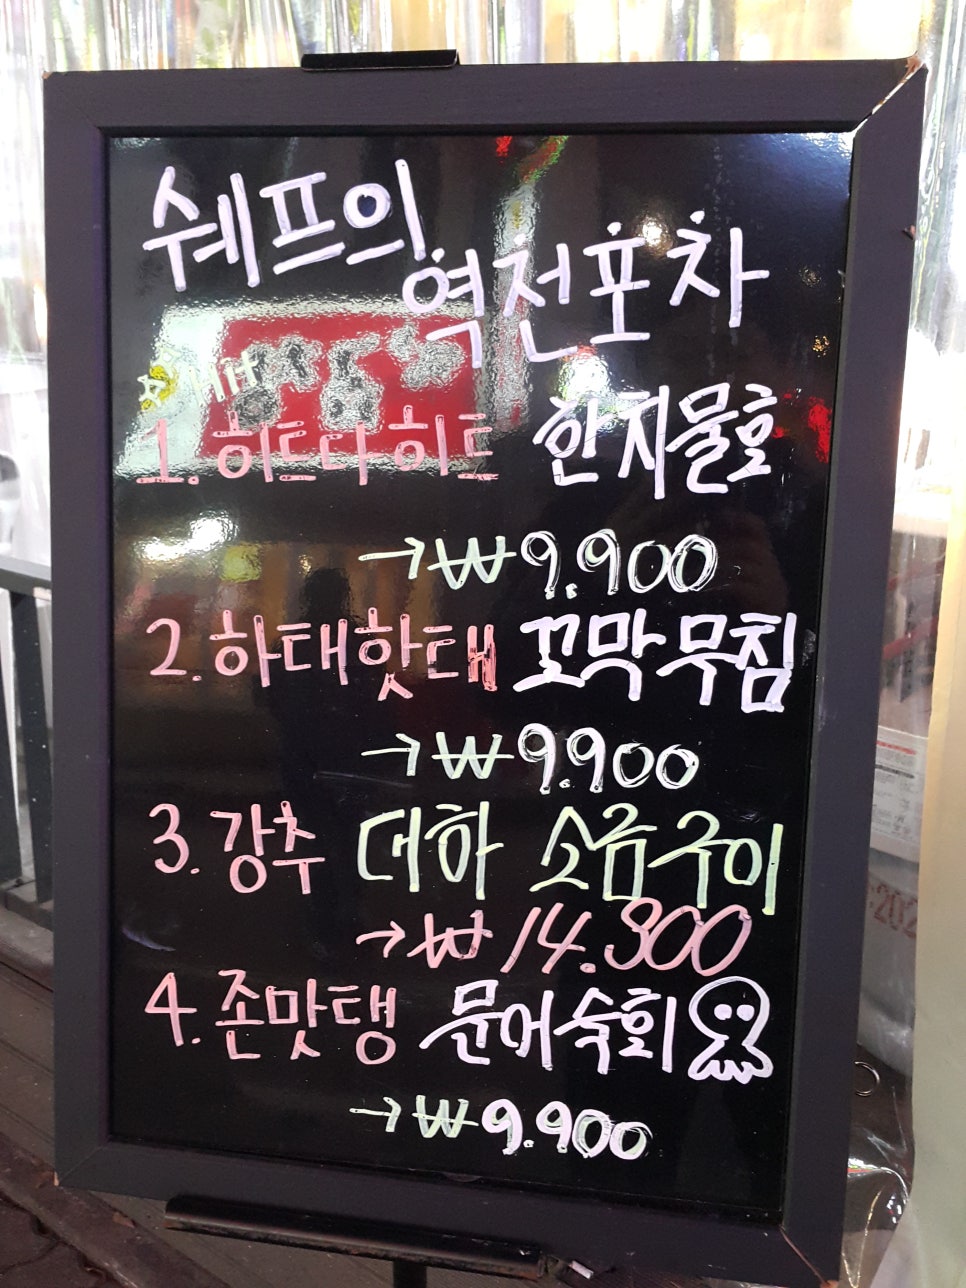 쉐프의
역전포차
Hit
1. 히트다히트 한치물회
→₩9.900
2. 하태핫태 꼬막무침
→₩9.900
3. 강추 대하 소금구이
→₩14.300
4. 존맛탱 문어숙회
→₩9.900